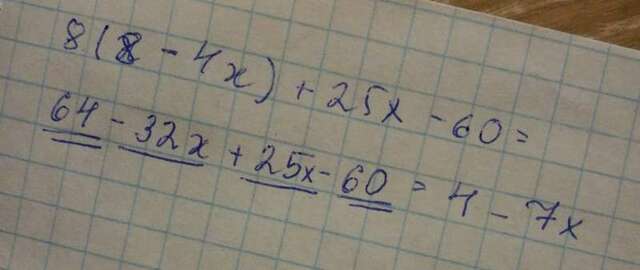 8(8 - 4x) + 25x - 60 =
64 - 32x + 25x - 60 = 4 - 7x